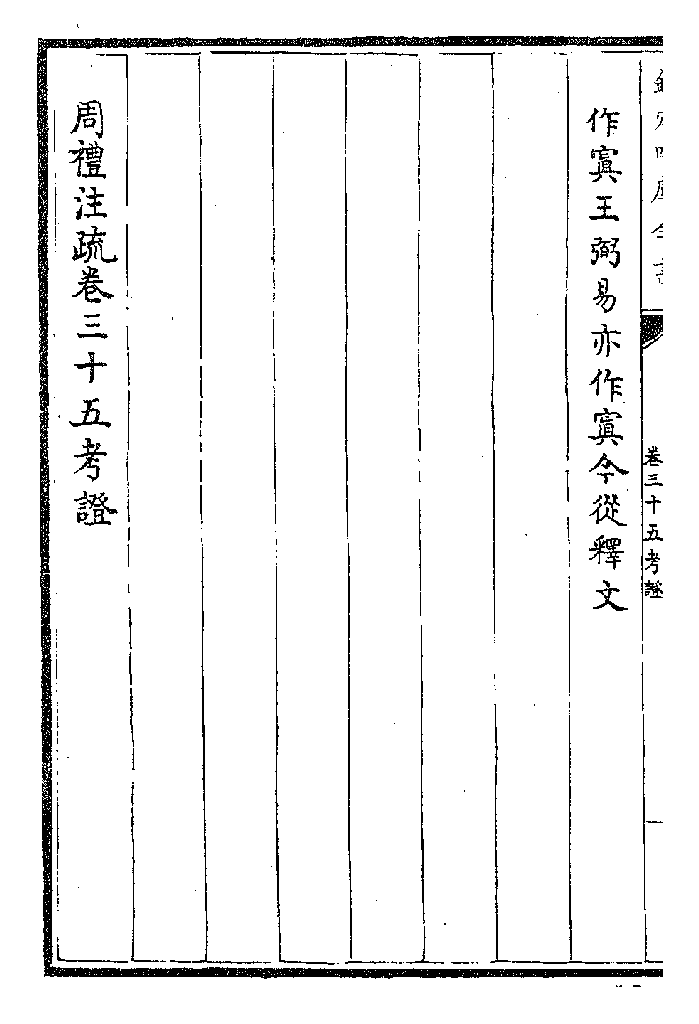 欽定四庫全書
卷三十五考證
作寘王弼易亦作寘今從釋文
周禮注疏卷三十五考證